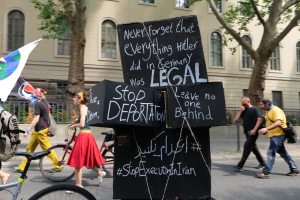 Never forget that
everything Hitler
did in Germany
was LEGAL
STOP
DEPORTATION
Leave no
one Behind
#اعدام_نکنید
#StopExecutionInIran